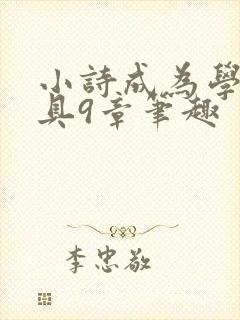 小詩成為學
具9章筆趣
李忠敬